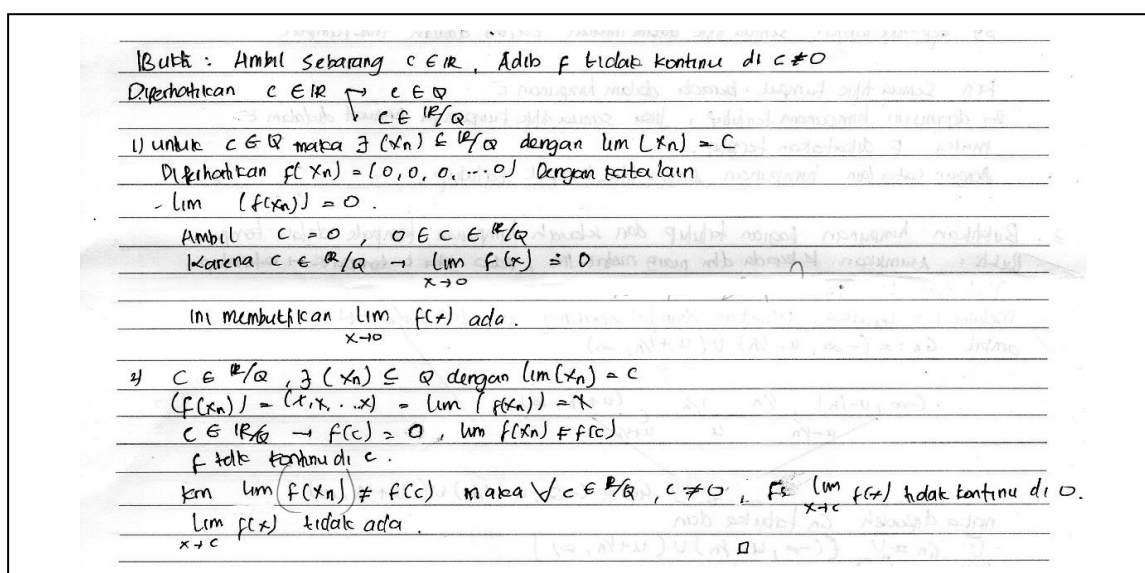 Bukti : Ambil sebarang c ∈ IR, Adib f tidak kontinu di c ≠ 0
Diperhatikan c ∈ IR → c ∈ Q
c ∈ IR/Q
1) untuk c ∈ Q maka ∃ (xn) ⊆ IR/Q dengan lim (xn) = c
Diperhatikan f(xn) = (0, 0, 0, ... 0) Dengan kata lain
- lim (f(xn)) = 0.
Ambil c = 0, 0 ∈ c ∈ IR/Q
Karena c ∈ IR/Q → lim f(x) = 0
x→0
Ini membuktikan lim f(x) ada.
x→0
2) c ∈ IR/Q, ∃ (xn) ⊆ Q dengan lim(xn) = c
(f(xn)) = (x, x, ... x) = lim (f(xn)) = x
c ∈ IR/Q → f(c) = 0, lim f(xn) ≠ f(c)
f tdk kontinu di c.
krn lim (f(xn)) ≠ f(c) maka ∀ c ∈ IR/Q, c ≠ 0, lim f(x) tidak kontinu di 0.
x→c
lim f(x) tidak ada.
x→c
□